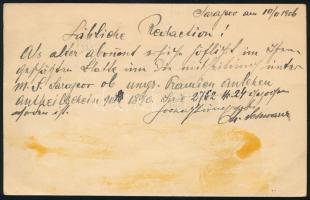 Sarajevo am 10/11 1906
Löbliche Redaction!
Als alter abonent ersuche höflichst im Ihrem
geschätzten Blatte um die mittheilung unter
M. S. Sarajevo ob ung. Prämien anlehen
antheilschein 1870. Serie 2762 N. 24 gezogen
worden ist.
Hochachtungsvoll
Schwarz